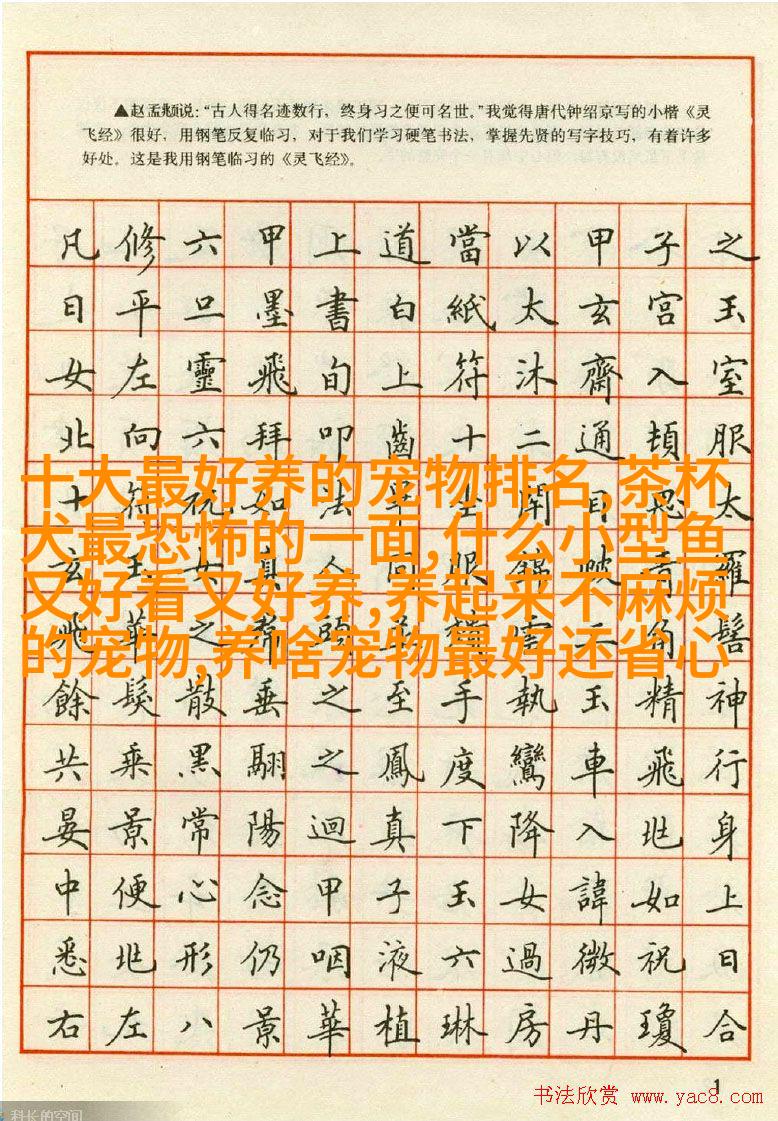 ▲赵孟頫说:“古人得名迹数行，终身习之便可名世。”我觉得唐代钟绍京写的小楷《灵
飞经》很好，用钢笔反复临习，对于我们学习硬笔书法，掌握先贤的写字技巧，有着许多
好处。这是我用钢笔临习的《灵飞经》。
凡修六甲上道當以甲子之
日平旦墨書白紙太玄宮玉
女左靈飛旬上符沐齋入室
北向六拜叩齒十二通頓服
十大最好养的宠物排名,茶杯
犬最恐怖的一面,什么小型鱼
又好看又好养,养起来不麻烦
的宠物,养啥宠物最好还省心
十符祝如法畢坐閉目思太
玄玉女真人同服錦帔青羅
飛華之帬頭並頹雲三角髻
餘髮散垂之至手執玉精神
共乘黑翮之鳳度鸞車飛行
晏景常陽迴真下降入兆身
中便心念甲子玉女諱如上
悉兆形仍咽液六過微祝曰
右左八景華植琳房丹瓊合
1
书法欣赏 www.yac8.com
科长的空间